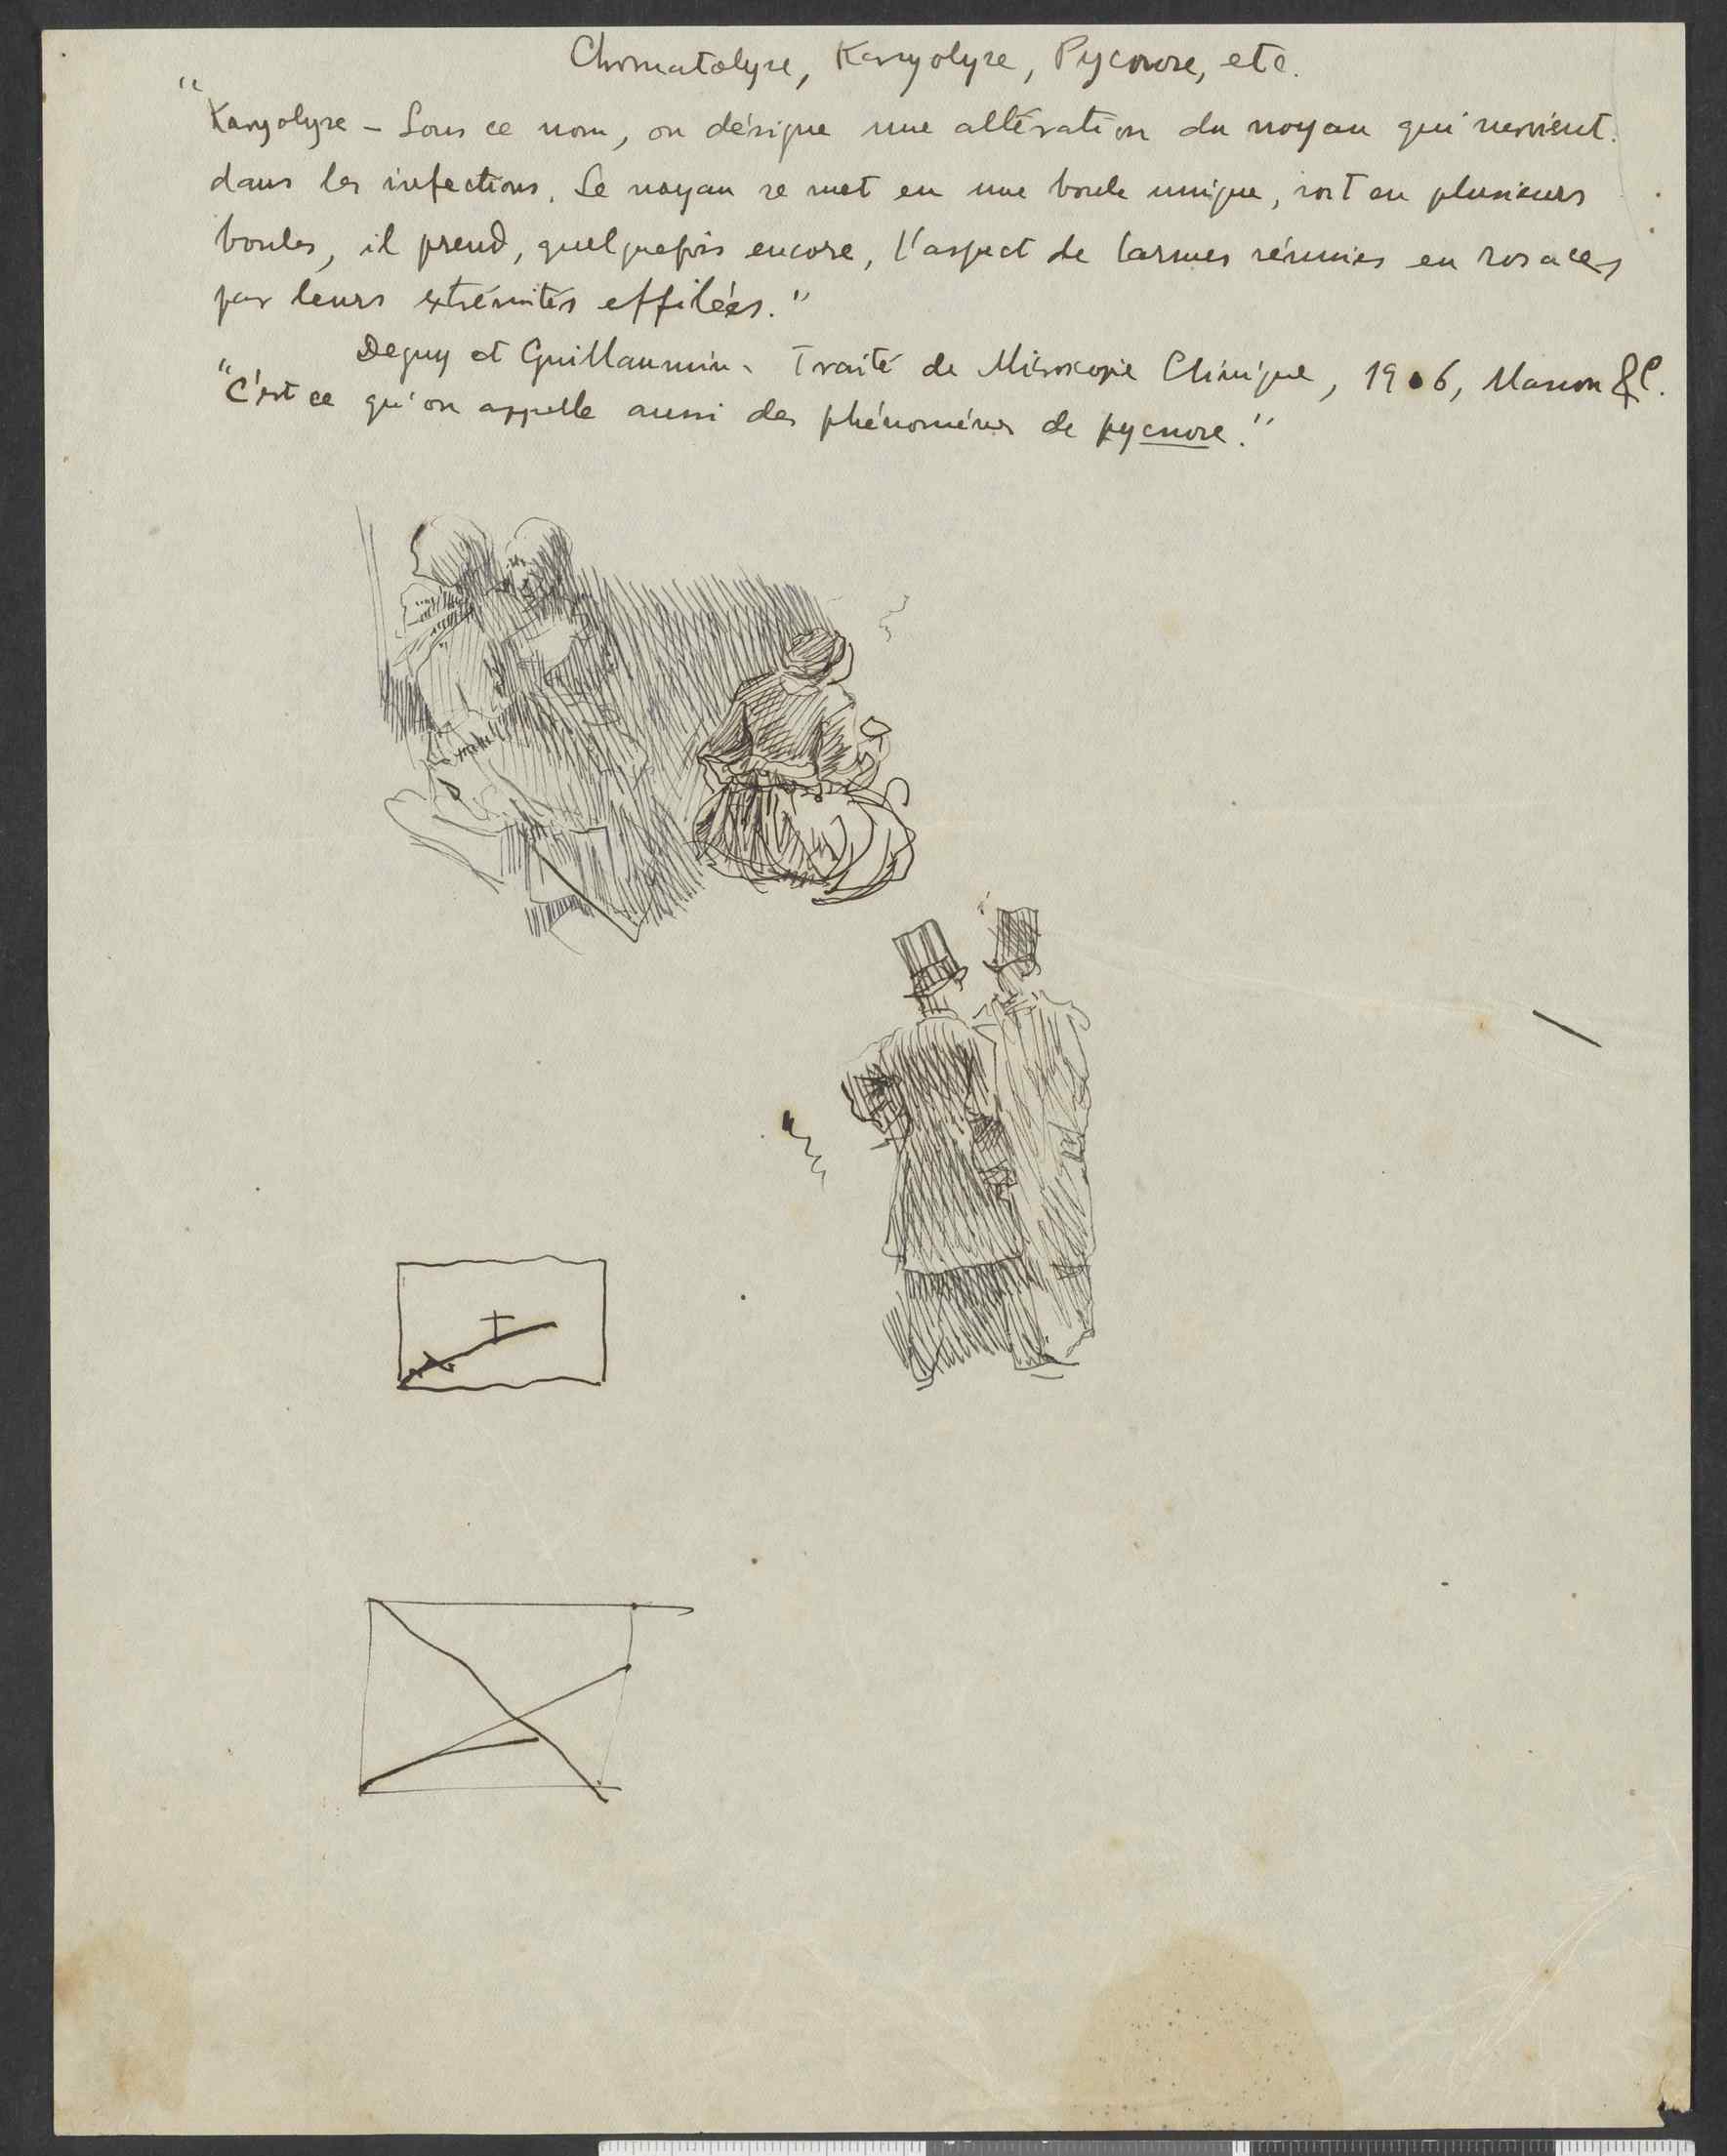 Chromatolyse, Karyolyse, Pycnose, etc.
"Karyolyse – Sous ce nom, on désigne une altération du noyau qui survient
dans les infections. Le noyau se met en une boule unique, soit en plusieurs
boules, il prend, quelquefois encore, l'aspect de larmes réunies en rosaces
par leurs extrémités effilées."
Deguy et Guillaumin. Traité de Microscopie Clinique, 1906, Masson & C.
"C'est ce qu'on appelle aussi des phénomènes de pycnose."